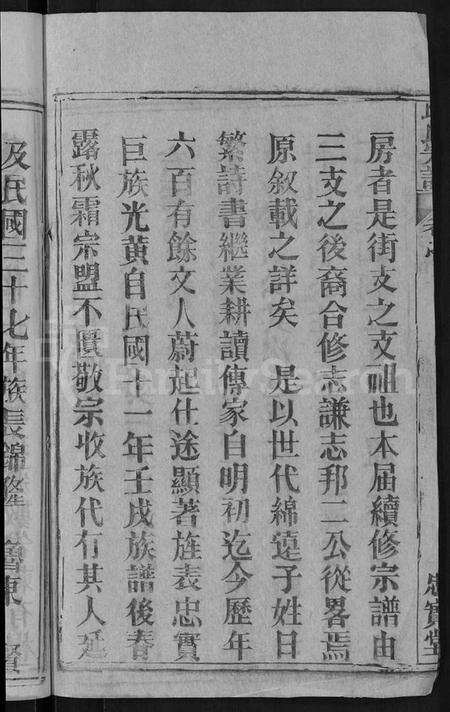 忠實堂
房者是街支之支祖也本届續修宗譜由
三支之後裔合修志謙志邦二公從畧焉
原敘載之詳矣 是以世代綿遠子姓日
繁詩書繼業耕讀傳家自明初迄今歷年
六百有餘文人蔚起仕途顯著旌表忠實
巨族光黄自民國十一年壬戌族譜後春
露秋霜宗盟不匱敬宗收族代有其人延
及民國三十七年族長錦隆
FamilySearch